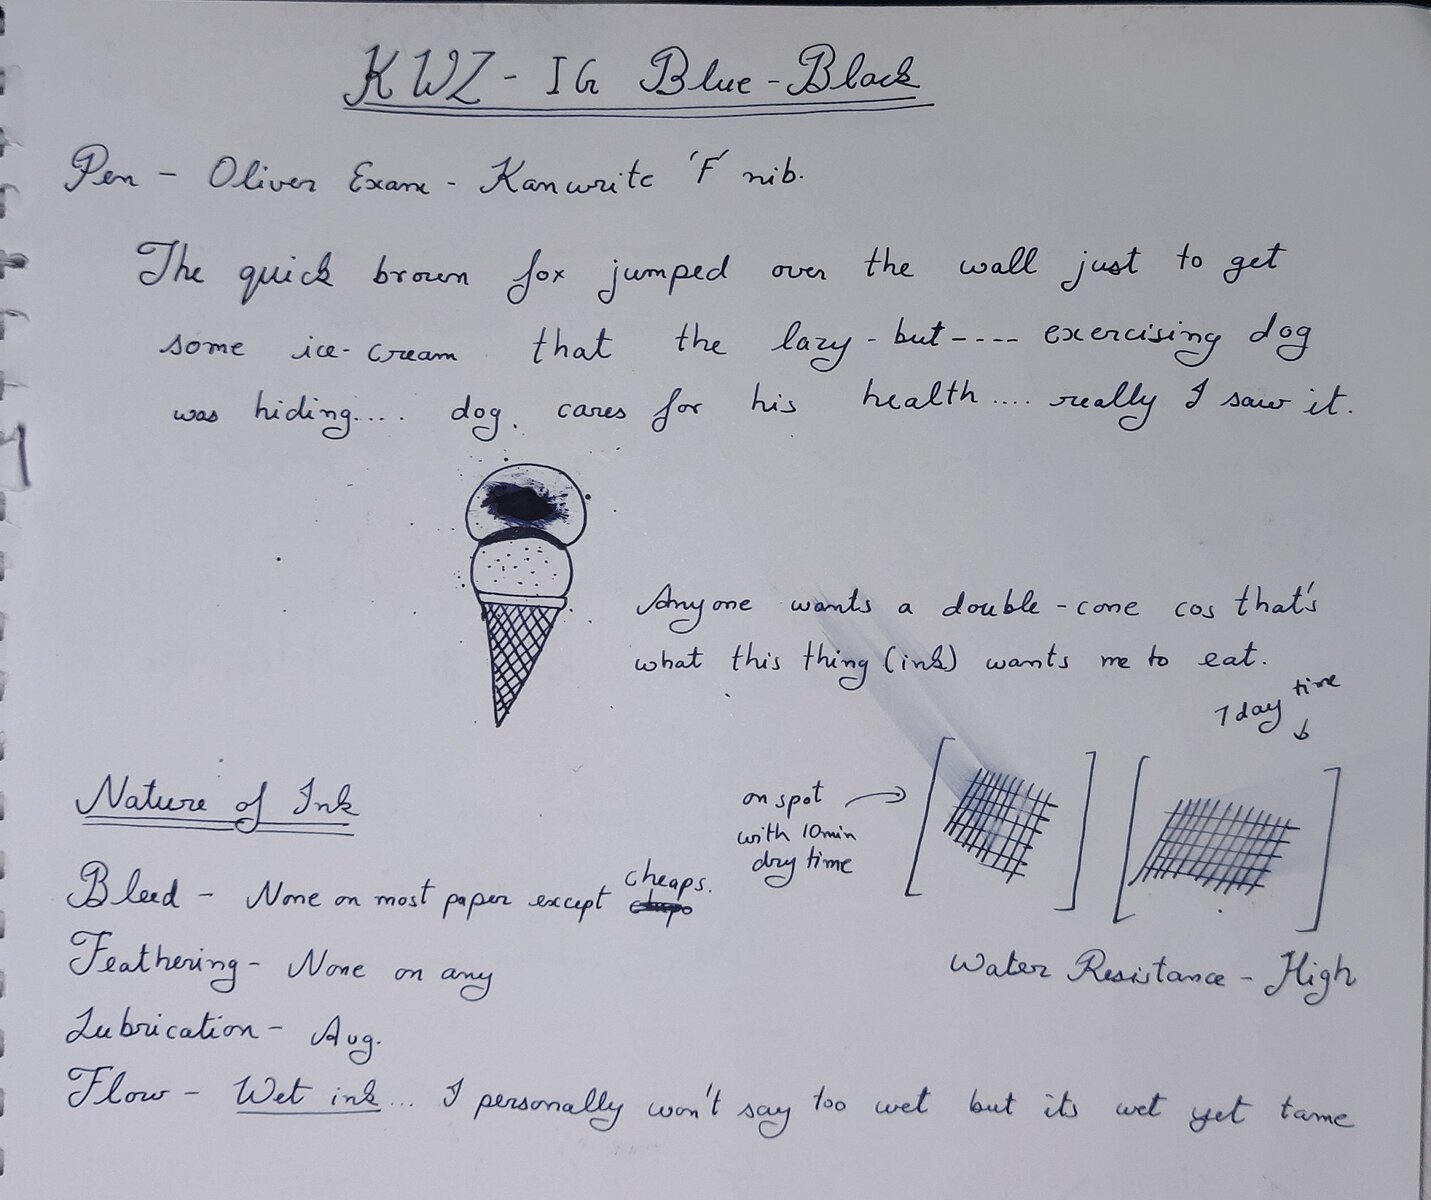 KWZ - IG Blue-Black
Pen - Oliver Exam - Kanwrite 'F' nib.
The quick brown fox jumped over the wall just to get
some ice-cream that the lazy - but ---- exercising dog
was hiding.... dog. cares for his health .... really I saw it.
Anyone wants a double-cone cos that's
what this thing (ink) wants me to eat.
1 day time
on spot
with 10min
dry time
Water Resistance - High
Nature of Ink
Bleed - None on most paper except cheaps.
Feathering - None on any
Lubrication - Avg.
Flow - Wet ink... I personally won't say too wet but its wet yet tame